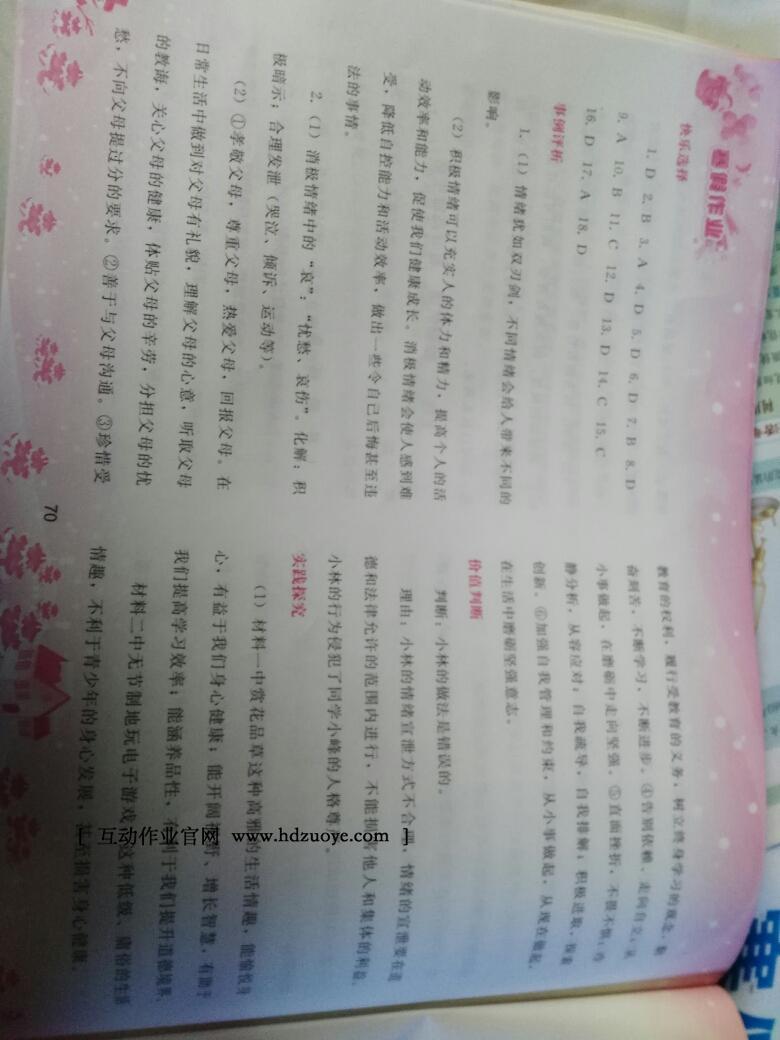 寒假作业
快乐选择
1. D 2. B 3. A 4. D 5. D 6. D 7. B 8. D
9. A 10. B 11. C 12. D 13. D 14. C 15. C
16. D 17. A 18. D
事例评析
1. (1) 情绪犹如双刃剑，不同情绪会给人带来不同的
影响。
(2) 积极情绪可以充实人的体力和精力，提高个人的活
动效率和能力，促使我们健康成长。消极情绪会使人感到难
受，降低自控能力和活动效率，做出一些令自己后悔甚至违
法的事情。
2. (1) 消极情绪中的“哀”：“忧愁、哀伤”。化解：积
极暗示；合理发泄（哭泣、倾诉、运动等）。
(2) ①孝敬父母，尊重父母，热爱父母，回报父母。在
日常生活中做到对父母有礼貌，理解父母的心意，听取父母
的教诲，关心父母的健康，体贴父母的辛劳，分担父母的忧
愁，不向父母提过分的要求。②善于与父母沟通。③珍惜受
教育的权利，履行受教育的义务，树立终身学习的观念，勤
奋刻苦，不断学习，不断进步。④告别依赖，走向自立：从
小事做起，在磨砺中走向坚强。⑤直面挫折，不畏不惧；冷
静分析，从容应对；自我疏导，自我排解；积极进取，探索
创新。⑥加强自我管理和约束，从小事做起，从现在做起，
在生活中磨砺坚强意志。
价值判断
判断：小林的做法是错误的。
理由：小林的情绪宣泄方式不合理，情绪的宣泄要在道
德和法律允许的范围内进行，不能损害他人和集体的利益。
小林的行为侵犯了同学小峰的人格尊严。
实践探究
(1) 材料一中赏花品草这种高雅的生活情趣，能愉悦身
心，有益于我们身心健康；能开阔视野、增长智慧，有助于
我们提高学习效率；能涵养品性，有利于我们提升道德境界。
材料二中无节制地玩电子游戏这种低级、庸俗的生活
情趣，不利于青少年的身心发展，甚至损害身心健康。
70
[ 互动作业官网 www.hdzuoye.com ]